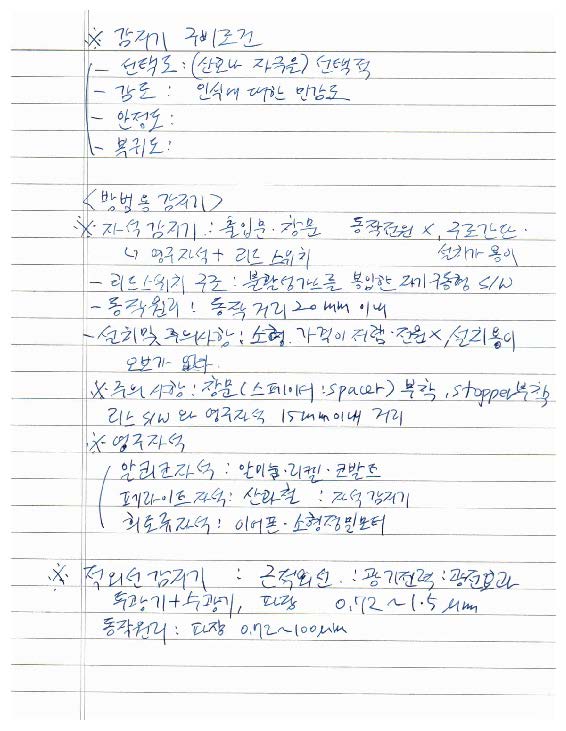 ※ 감지기 구비조건
- 선택도 : (신호나 자극을) 선택적
- 감도 : 인식에 대한 민감도
- 안정도 :
- 복귀도 :
<방범용 감지기>
※ 자석감지기 : 출입문·창문 동작전원 X, 구조간단·
↳ 영구자석 + 리드 스위치 설치가 용이
- 리드스위치 구조 : 불활성가스를 봉입한 자기구동형 S/W
- 동작원리 : 동작 거리 20mm 이내
- 설치및 주의사항 : 소형. 가격이 저렴·전원X, 설치용이
오보가 없다.
※ 주의 사항 : 창문(스페이서 : spacer) 부착, stopper부착
리드 S/W 와 영구자석 15mm이내 거리
※ 영구자석
알니코자석 : 알미늄·니켈·코발트
페라이트자석 : 산화철 : 자석감지기
희토류자석 : 이어폰·소형정밀모터
※ 적외선 감지기 : 근적외선 : 광기전력 : 광전효과
투광기+수광기, 파장 0.72~1.5 μm
동작원리 : 파장 0.72~100μm